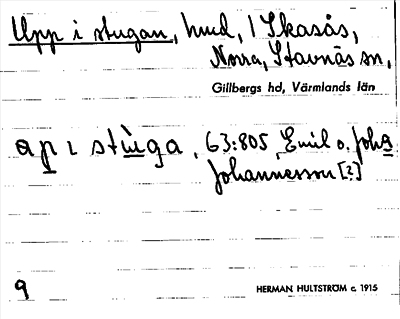 Upp i stugan, hmd, 1 Skasås,
Norra, Stavnäs sn,
Gillbergs hd, Värmlands län
ap ı stùga, 63:805, Emil o. Joh a
Johannesson [?]
9
HERMAN HULTSTRÖM c. 1915